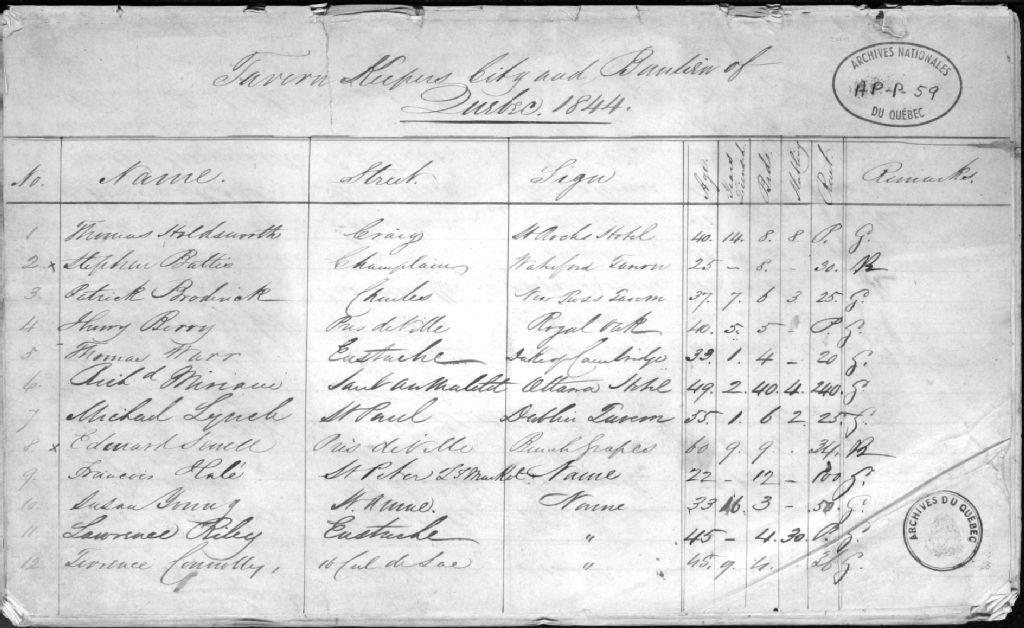 Tavern Keepers City and Banlieu of
Quebec. 1844.
ARCHIVES NATIONALES
AP-P-59
DU QUÉBEC
No. Name. Street. Sign Age. Years Beds. Rent. Remarks.
1 Thomas Holdsworth Craig St Rochs Hotel 40. 14. 8. 8 P. G.
2 x Stephen Battis Champlain Waterford Tavern 25 - 8. - 30. R
3 Patrick Brodrick Charles Tavern 37. 7. 6 3 25. G.
4 Henry Berry Pres de Ville Royal Oak 40. 5. 5 - P. G.
5 Thomas Farr Eustache Duke of Cambridge 33. 1. 4 - 20 G.
6. Richd Sault au Matelot Ottawa Hotel 49. 2. 40. 4. 240. G
7 Michael Lynch St Paul Dublin Tavern 55. 1. 6 2. 25 G.
8 x Edward Pres de Ville Bunch Grapes 60 9. 9. . 34. R
9. Francois Halé St Peter Market Name 22 - 12 - 100 G.
10. Susan Young St. Anne. Name 33 16 3 - 50. G.
11. Lawrence Riley Eustache " 45 - 4. 30. P. G.
12. Terrence Connolly, 10 Cul de Sac " 45. 9. 4. . 26 G.
ARCHIVES DU QUÉBEC